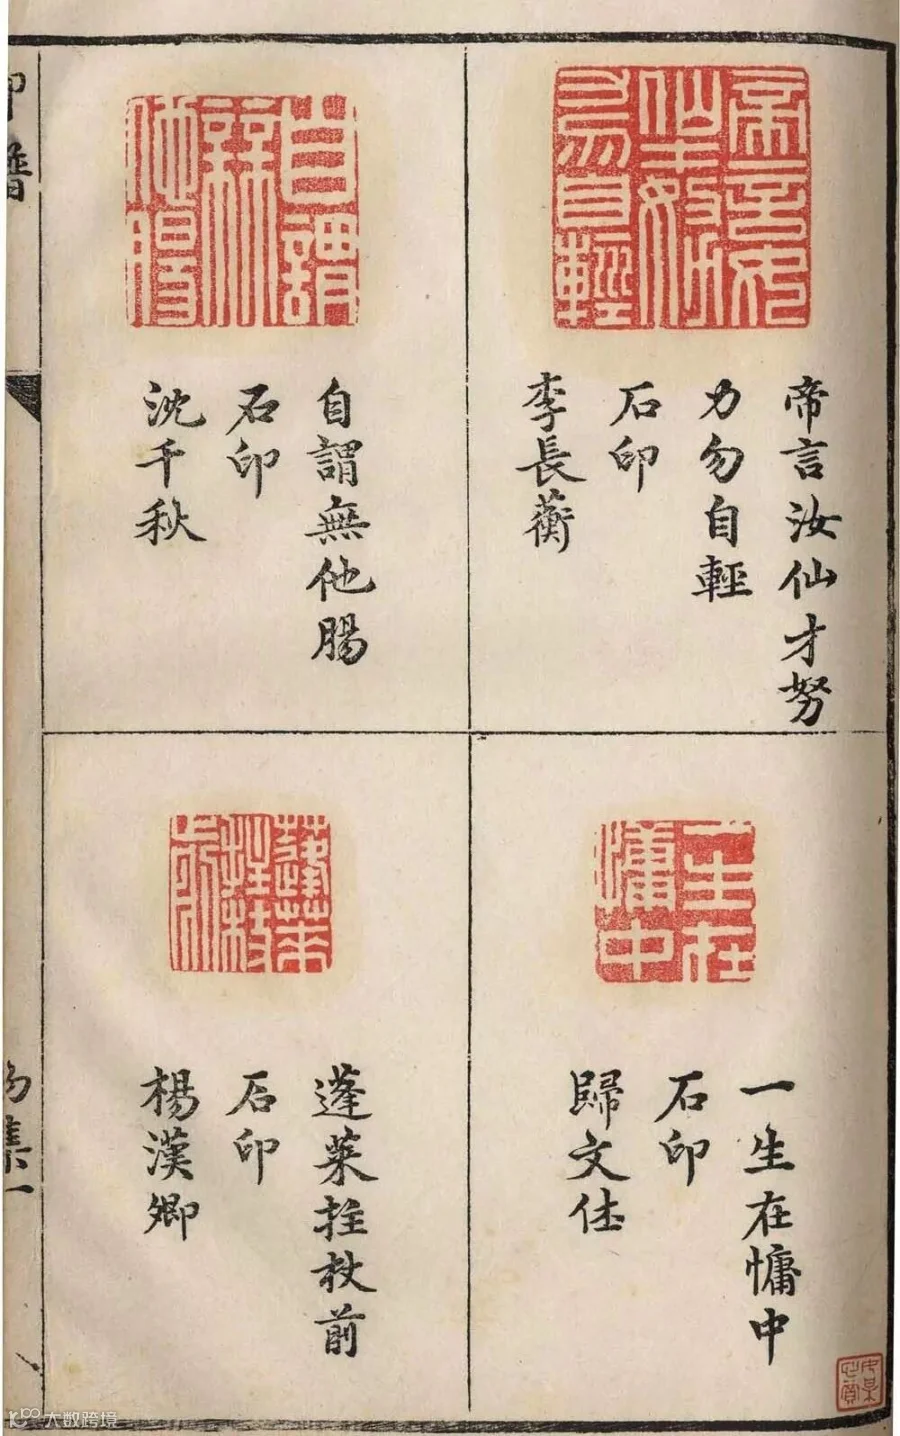 帝言汝仙才努
力勿自輕
石印
李長蘅
自謂無他腸
石印
沈千秋
一生在慵中
石印
歸文休
蓬萊拄杖前
石印
楊漢卿
印譜
集一
大数跨境